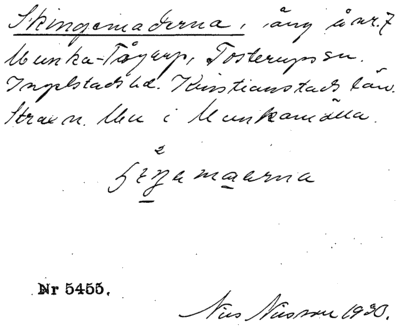 Skingemaderna, äng å nr. 7
Munka-Tågarp, Tosterups sn.
Ingelstads hd. Kristianstads län.
Strax n. Mu i Munkamölla.
Nr 5455.
Nils Nilsson 1930.